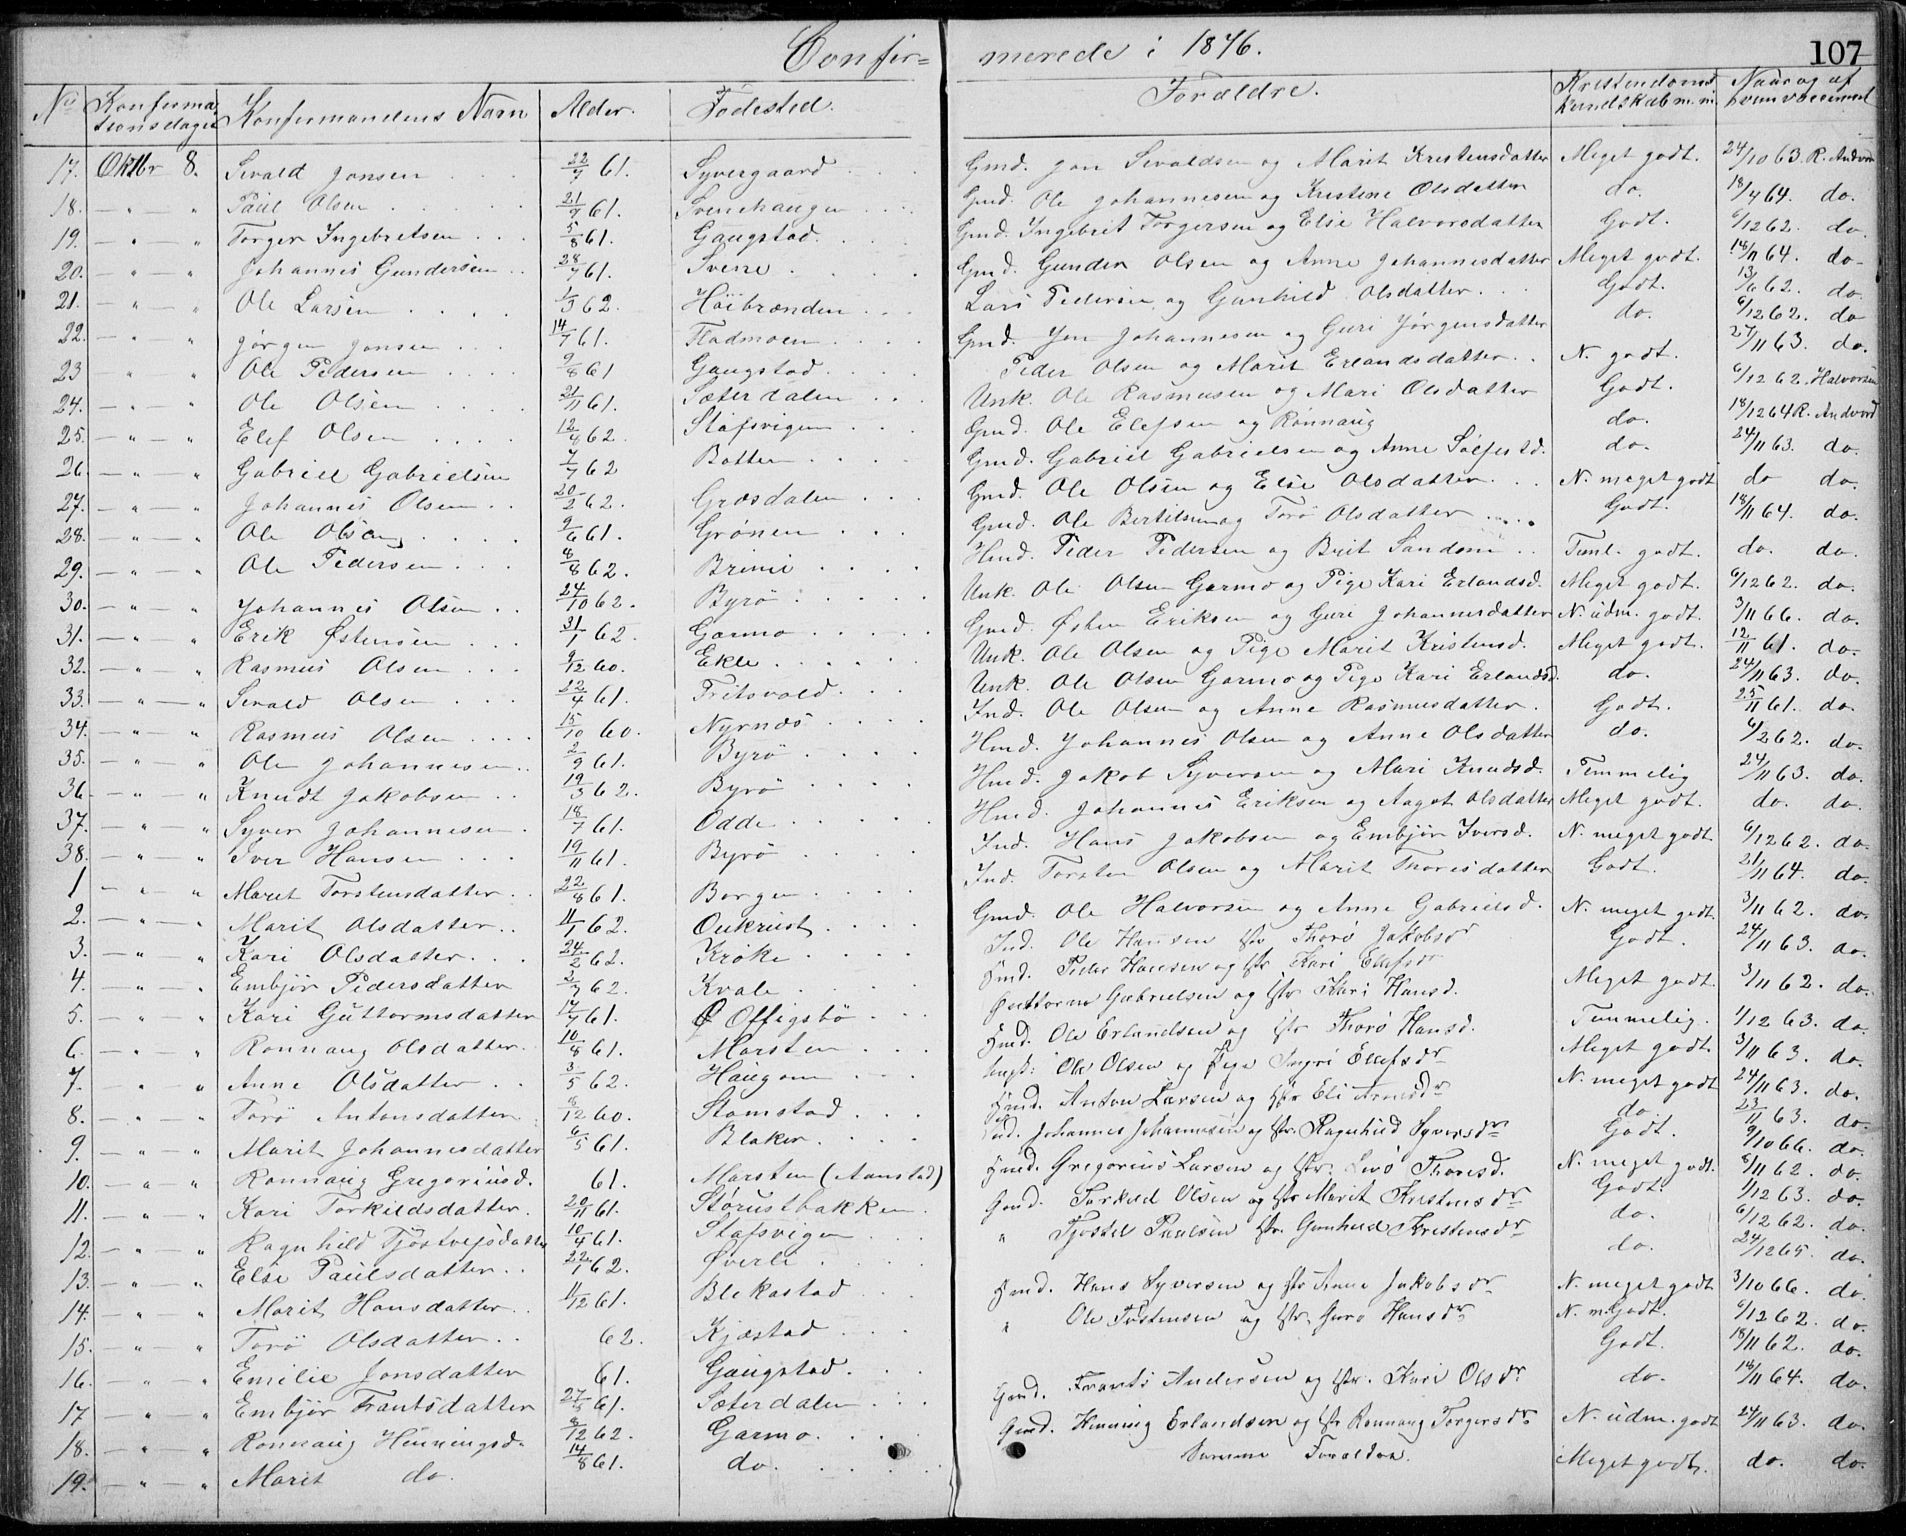 Confir= merede i 1876.
107
No Konfirmationsdagen Konfirmandens Navn Alder. Fødested. Forældre. Kristendomskundskab m.m. Naar og af hvem vaccineret
17. Oktbr 8. Sivald Jonsen 22/7 61. Syvergaard Gmd. Jon Sivaldsen og Marit Kristensdatter Meget godt. 24/10 63. R. Andvord
18. " Paul Olsen 21/9 61. Svenshaugen Gmd. Ole Johannesen og Kristine Olsdatter do. 18/4 64. do.
19. " Torger Ingebretsen 5/8 61. Gaugstad Gmd. Ingebrit Torgersen og Else Halvorsdatter Godt. 6/12 62. do.
20. " Johannes Gundersen 28/7 61. Svene Gmd. Gunder Olsen og Anne Johannesdatter Meget godt. 14/11 64. do.
21. " Ole Larsen 1/3 62. Høibrænden Lars Pedersen og Gunhild Olsdatter Godt. 13/6 62. do.
22. " Jørgen Jonsen 14/7 61. Fladmoen Gmd. Jon Johannesen og Guri Jørgensdatter do. 6/12 62. do
23 " Ole Pedersen 9/8 61 Gaugstad Peder Olsen og Marit Erlandsdatter N. godt. 27/11 63. do.
24. " Ole Olsen 21/11 61. Sæterdalen Unk. Ole Rasmusen og Mari Olsdatter Godt. 6/12 62. Halvorsen
25. " Elef Olsen 12/8 62. Stafsvigen Gmd. Ole Elefsen og Rønnaug do. 18/12 64 R. Andvord
26. " Gabriel Gabrielsen 7/7 62 Botten Gmd. Gabriel Gabrielsen og Anne Sølfestd. do. 24/11 63. do.
27. " Johannes Olsen 20/2 62. Græsdalen Gmd. Ole Olsen og Else Olsdatter N. meget godt do do.
28. " Ole Olsen 9/6 61. Grønen Gmd. Ole Bertilsen og Torø Olsdatter Godt. 18/11 64. do.
29. " Ole Pedersen 8/8 62. Brimi Hmd. Peder Pedersen og Brit Sandom Teml. godt. do. do.
30. " Johannes Olsen 24/10 62. Byrø Unk. Ole Olsen Garmo og Pige Kari Erlandsd. Meget godt. 6/12 62. do.
31. " Erik Østensen 31/1 62. Garmo Gmd. Østen Eriksen og Guri Johannesdatter N. udm. godt. 3/11 66. do.
32. " Rasmus Olsen 9/12 60. Ekle Unk. Ole Olsen og Pige Marit Kristensd. Meget godt. 12/11 61. do.
33. " Sivald Olsen 22/4 61. Fritsvold Unk. Ole Olsen Garmo og Pige Kari Erlandsd. do. 24/11 63. do.
34. " Rasmus Olsen 15/10 60. Nyrnæs Ind. Ole Olsen og Anne Rasmusdatter Godt. 25/11 61. do.
35. " Ole Johannesen 2/9 61. Byrø Hmd. Johannes Olsen og Anne Olsdatter do. 6/12 62. do.
36. " Knudt Jakobsen 19/3 62. Byrø Hmd. Jakob Syversen og Mari Knudsd. Temmelig 24/11 63. do.
37. " Syver Johannesen 18/7 61. Odde Hmd. Johannes Eriksen og Aagot Olsdatter Meget godt. do. do.
38. " Iver Hansen 19/11 61. Byrø Ind. Hans Jakobsen og Embjør Iversd. N. meget godt 6/12 62. do.
1 " Maret Torstensdatter 22/8 61. Borgen Ind. Torsten Olsen og Marit Thoresdatter Godt. 21/11 64. do.
2. " Marit Olsdatter 11/1 62. Oukrust Gmd. Ole Halvorsen og Anne Gabrielsd. N. meget godt 3/11 62. do.
3. " Kari Olsdatter 24/2 62. Krøke Ind. Ole Hansen Hr Thorø Jakobsdr Godt. 24/11 63. do.
4. " Embjør Pedersdatter 3/7 62. Kvale Hmd. Peder Hansen og Hr Kari Elefsdr Meget godt. 3/11 62. do.
5. " Kari Guttormsdatter 17/7 61. Offigsbø Guttorm Gabrielsen og Hr Kari Hansd. Temmelig. 1/12 63. do.
6. " Ronnaug Olsdatter 10/8 61. Marsten Hmd. Ole Erlandsen og Hr Thorø Hansd. Meget godt. 3/11 63. do.
7. " Anne Olsdatter 3/5 62. Haugom Ungk: Ole Olsen og Pige Ingri Elefsdr N. meget godt 24/11 63. do.
8. " Torø Antonsdatter 8/12 60. Stamstad Hmd. Anton Larsen og Hr Eli Arnesdr do. 23/11 63. do.
9. " Marit Johannesdatter 6/5 61. Blaker Ind. Johannes Johannesen og Hr. Ragnhild Syversdr Godt. 9/10 66. do.
10. " Ronnaug Gregoriusd. 61. Marsten (Aanstad) Hmd. Gregorius Larsen og Hr. Sivø Thoresd. N. meget godt. 8/11 62. do.
11. " Kari Torkildsdatter. 20/11 61. Størustbakken Gmd. Torkild Olsen og Hr Marit Kristensdr Godt. 1/12 63. do.
12. " Ragnhild Tjøstvejsdatter 10/4 61. Stafsvigen " Tjostel Paulsen Hr. Gunhild Kristensdr do. 6/12 62. do.
13. " Else Paulsdatter 22/1 62. Øverli do. 24/12 65. do.
14. " Marit Hansdatter 11/12 61. Blekastad Hmd. Hans Syversen og Hr Anne Jakobsdr N. meget godt 3/10 66. do.
15. " Torø Olsdatter 62. Kjæstad " Ole Tostensen og Hr. Guro Hansdr N. m. Godt. 6/12 62. do.
16. " Emilie Jonsdatter 61. Gaugstad Godt. 18/11 62. do.
17 " Embjør Frantsdatter 27/5 61. Sæterdalen Gmd. Frants Andersen og Hr. Kari Olsdr do. 18/11 64. do.
18. " Ronnaug Henningsd. 8/12 62. Garmo. Gmd. Henning Erlandsen og Hr Ronnaug Torgersdr N. udm. godt 24/11 63. do.
19. " Marit do. 14/8 61. do. Samme Forældre. Meget godt. do. do.